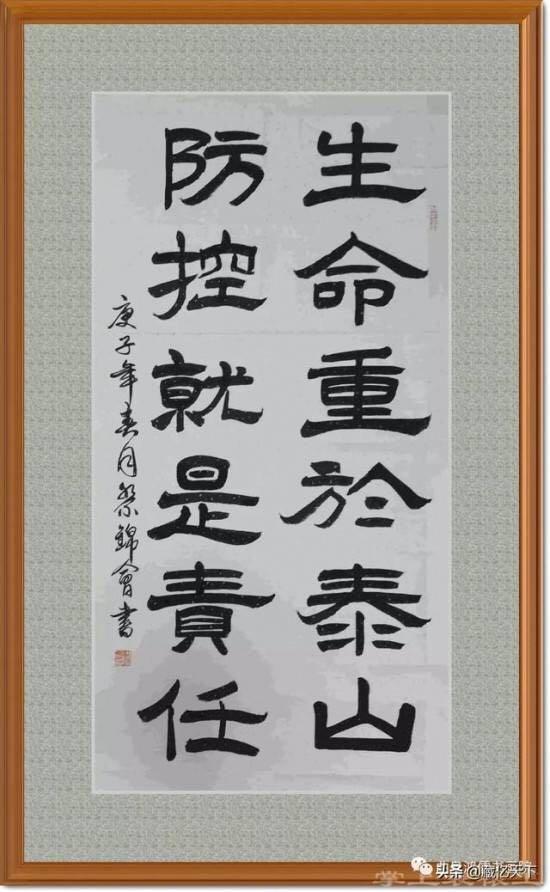 生命重於泰山
防控就是責任
庚子年春月蔡錦會書
头条@臧亿天下